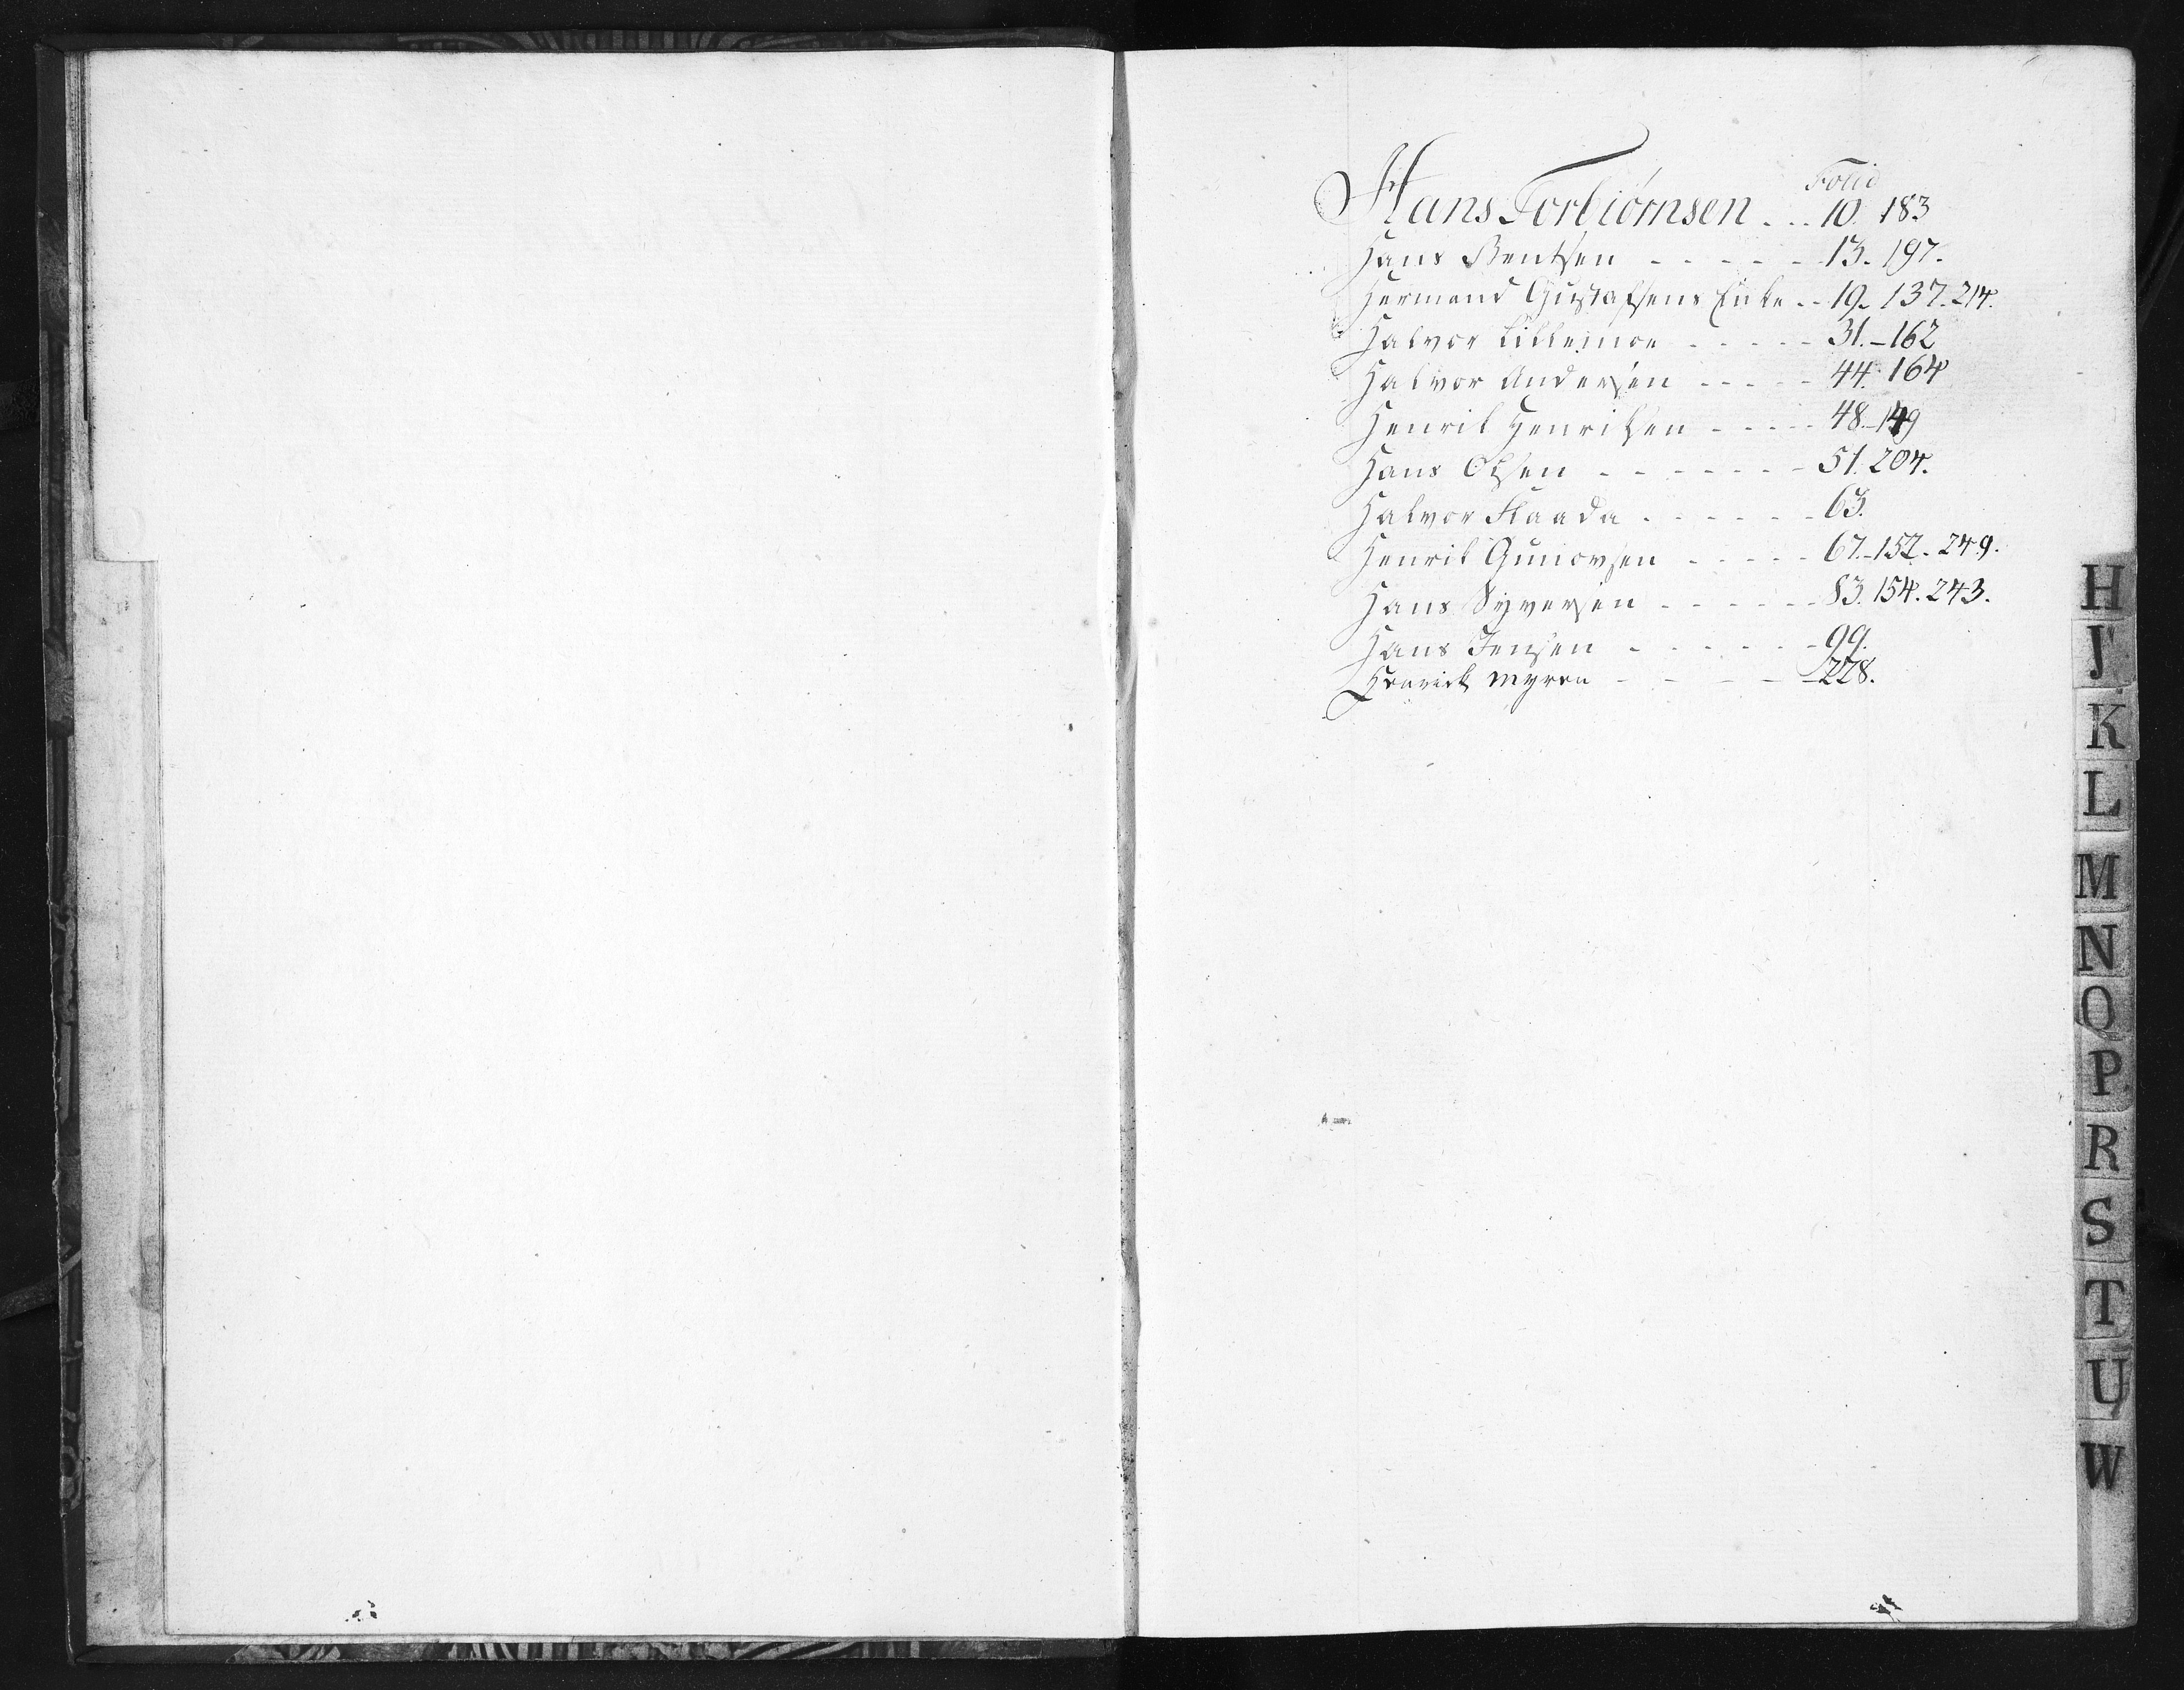 Folio
Hans Torbiørnsen . . . 10. 183
Hans Bentsen - - - - - 13. 197.
Hermand Gustafsens Enke . . 19. 137. 214.
Halvor Lillemoe - - - - - 31. - 162
Halvor Andersen - - - - - 44. 164
Henrik Henriksen - - - - - 48. - 149
Hans Olsen - - - - - - - 51. 204.
Halvor Flaada . - - - - - 63.
Henrik Gunnorsen - - - - - 67. - 152. 249.
Hans Syversen - - - - - - 83. 154. 243.
Hans Jensen - - - - - - 99.
Henrick Myren - - - - - 228.
H
J
K
L
M
N
O
P
R
S
T
U
W